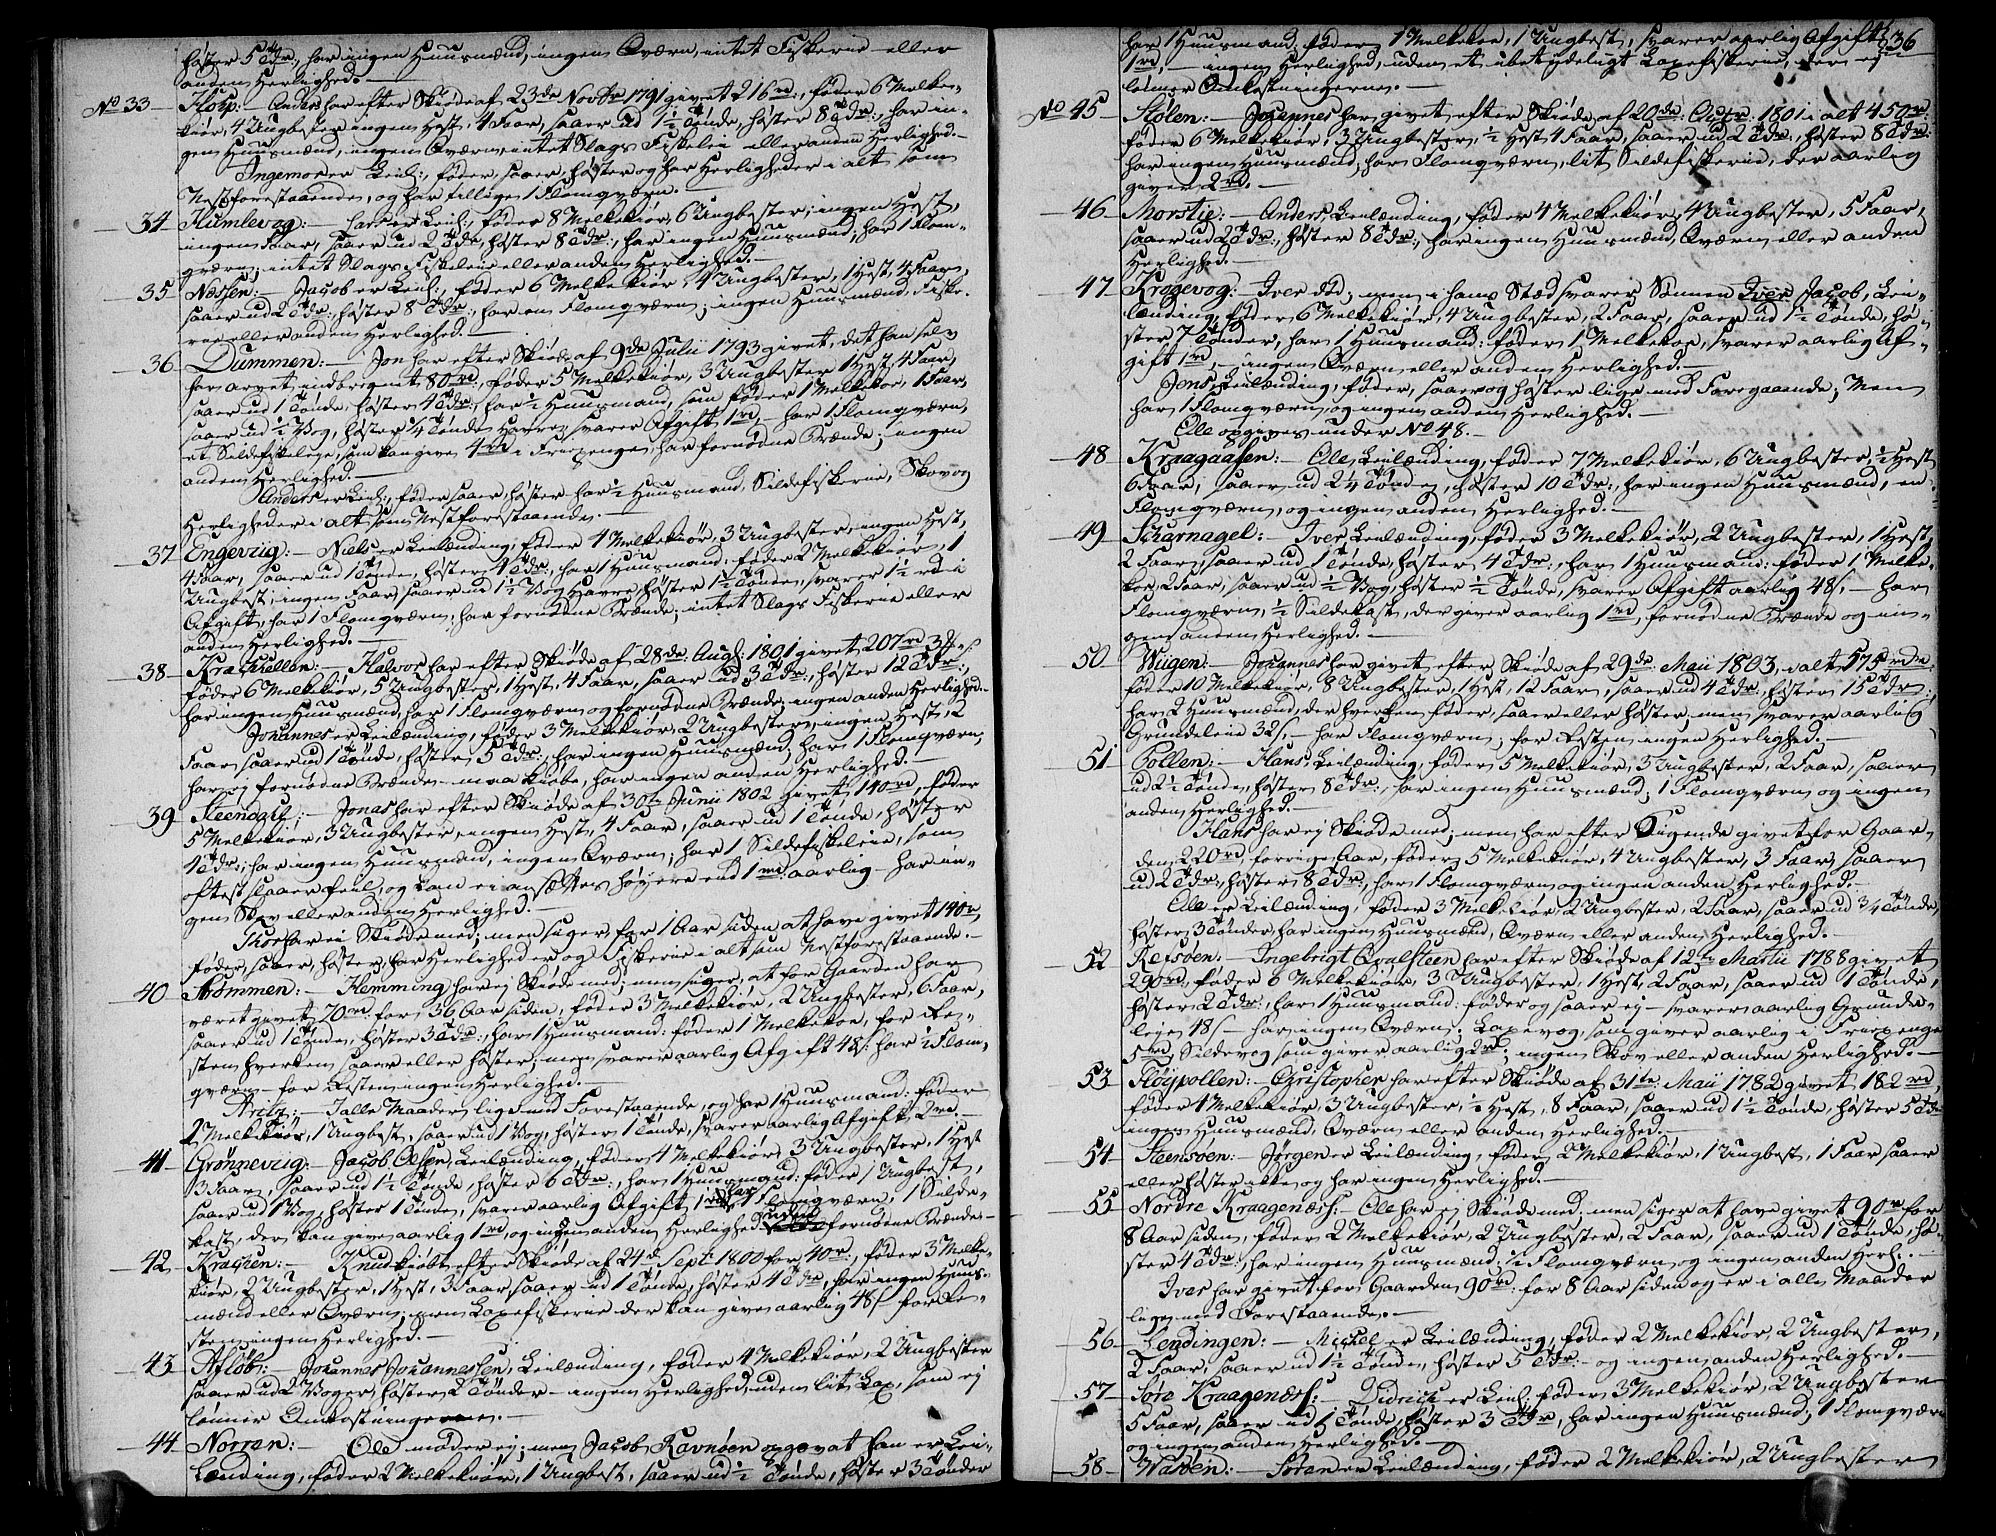 høster 5 Tdr:, har ingen Huusmænd, ingen Qværn, intet Fiskerie eller
anden Herlighed. —
No 33 — Floxp: — Anders har efter Skiøde af 23de Novbr 1791 givet 216 rd:, føder 6 Melke-
kiør, 4 Ungbester ingen Hest, 4 Faar, saaer ud 1½ Tønde, høster 8 Tdr:, har in-
gen Huusmænd, ingen Qværn, intet Slags Fiskeleie eller anden Herlighed. —
Ingemor er Leil:, føder, saaer, høster og har Herligheder i alt som
Nestforestaaende, og har tillige 1 Flomqværn. —
34 Humlevog: — er Leil:, føder 8 Melkekiør, 6 Ungbester, ingen Hest,
ingen Faar, saaer ud 2 Tdr, høster 8 Tdr:, har ingen Huusmænd, har 1 Flom-
qværn, intet Slags Fiskeleie eller anden Herlighed. —
35 Næssen: — Jacob er Leil:, føder 6 Melkekiør, 4 Ungbester, 1 Hest, 4 Faar,
saaer ud 2 Tdr:, høster 8 Tdr:, har en Flomqværn; ingen Huusmænd, Fiske-
rie eller anden Herlighed. —
36 Dummen: — Jon har efter Skiøde af 9de Julii 1793 givet, det han selv
har arvet indbregnet, 80 rd, føder 5 Melkekiør, 3 Ungbester 1 Hest, 4 Faar,
saaer ud 1 Tønde, høster 4 Tdr:, har ½ Huusmand, som føder 1 Melkekoe, 1 Faar,
saaer ud ½ Vog, høster ¼ Tønde Havre, svarer Afgift 1 rd, — har 1 Flomqværn,
et Sildefiskeleje, som kan give 4 rd i Friepenge, har fornødne Brænde; ingen
anden Herlighed. —
Anders er Leil:, føder saaer, høster har ½ Huusmand, Sildefiskerie, Skov og
Herligheder i alt som Nestforestaaende. —
37 Engeviig: — Niels er Leilænding, føder 4 Melkekiør, 3 Ungbester, ingen Hest,
4 Faar, saaer ud 1 Tønde, høster 4 Tdr:, har 1 Huusmand: føder 2 Melkekiør, 1
Ungbest, ingen Faar, saaer ud 1½ Vog Havre, høster 1½ Tønde, svarer 1½ rd i
Afgift, har 1 Flomqværn, har fornødne Brænde; intet Slags Fiskerie eller
anden Herlighed. —
38 Kraghollen: — Halvor har efter Skiøde af 28de Augl: 1801 givet 207 rd
føder 6 Melkekiør, 5 Ungbester, 1 Hest, 4 Faar, saaer ud 3 Tdr:, høster 12 Tdr:,
har ingen Huusmænd, har 1 Flomqværn og fornødne Brænde, ingen anden Herlighed. —
Johannes er Leilænding, føder 3 Melkekiør, 2 Ungbester, ingen Hest, 2
Faar, saaer ud 1 Tønde, høster 5 Tdr:, har ingen Huusmænd; har 1 Flomqværn,
har ej fornødne Brænde — maa kiøbe, har ingen anden Herlighed. —
39 Steensøe: — Jonas har efter Skiøde af 30te Junii 1802 givet 140 rd, føder
5 Melkekiør, 3 Ungbester, ingen Hest, 4 Faar, saaer ud 1 Tønde, høster
4 Tdr:, har ingen Huusmænd, ingen Qværn; har 1 Sildefiskeleie, som
oftest slaaer feil, og kan ei ansættes høyere end 1 rd: aarlig — har in-
gen Skov eller anden Herlighed. —
Thor har ei Skiøde med; men siger, for 1 Aar siden at have givet 140 rd,
føder, saaer, høster, har Herligheder og Fiskerie i alt som Nestforestaaende. —
40 Strømmen: — Hemming har ej Skiøde med; men siger, at for Gaarden har
været givet 70 rd: for 36 Aar siden, føder 3 Melkekiør, 2 Ungbester, 6 Faar,
saaer ud 1 Tønde, høster 3 Tdr:, har 1 Huusmand: føder 1 Melkekoe, for Re-
sten hverken saaer eller høster; men svarer aarlig Afgift 48 s: har 1 Flom-
qværn — for Resten ingen Herlighed. —
Fritz: — I alle Maader lige med Forestaaende, og har 1 Huusmand: føder
2 Melkekiør, 1 Ungbest, saaer ud 1 Vog, høster 1 Tønde, svarer aarlig Afgift 2 rd. —
41 Grønneviig: — Jacob Olsen, Leilænding, føder 4 Melkekiør 3 Ungbester, 1 Hest
3 Faar, saaer ud 1½ Tønde, høster 6 Tdr:, har 1 Huusmand: føder 1 Ungbest,
saaer ud 1 Vog, høster 1 Tønde, svarer aarlig Afgift 1 rd, har 1 Flomqværn; 1 Silde-
kast, der kan give aarlig 1 rd, og ingen anden Herlighed, uden fornødne Brænde. —
42 Kraghen: — Knud kiøbt efter Skiøde af 24d Septr 1800 for 40 rd:, føder 3 Melke-
kiør, 2 Ungbester, 1 Hest, 3 Faar, saaer ud 1 Tønde, høster 4 Tdr, har ingen Huus-
mænd eller Qværn; men Laxefiskerie der kan give aarlig 48 s — for Re-
sten ingen Herlighed. —
43 Afløb: — Johannes Johannessen, Leilænding, føder 4 Melkekiør, 2 Ungbester
saaer ud 2 Voger, høster 2 Tønder — ingen Herlighed, uden lit Lax, som ej
lønner Omkostningerne. —
44 Norren: — Ole møder ej; men Jacob Ravnøen opgav at han er Lei-
lænding, føder 2 Melkekiør, 1 Ungbest, saaer ud ½ Tønde, høster 3 Tønder
36
har 1 Huusmand: føder 1 Melkekoe, 1 Ungbest, svarer aarlig Afgift
1 rd, — ingen Herlighed, uden et ubetydeligt Laxefiskerie, der ej
lønner Omkostningerne. —
No 45 Stølen: — Johannes har givet efter Skiøde af 20de Octbr 1801 i alt 450 rd:
føder 6 Melkekiør, 3 Ungbester, ½ Hest 4 Faar, saaer ud 2 Tdr:, høster 8 Tdr:
har ingen Huusmænd, har Flomqværn, lit Sildefiskerie, der aarlig
giver 2 rd. —
46 Morstie: — Anders, Leilænding, føder 4 Melkekiør, 4 Ungbester, 5 Faar,
saaer ud 2 Tdr:, høster 8 Tdr:, har ingen Huusmænd, Qværn eller anden
Herlighed. —
47 Krogevog: — Iver død; men i hans Stæd svarer Sønnen Iver Jacob, Lei-
lænding, føder 6 Melkekiør, 4 Ungbester, 2 Faar, saaer ud 1½ Tønde, hø-
ster 7 Tønder, har 1 Huusmand: føder 1 Melkekoe, svarer aarlig Af-
gift 1 rd, — ingen Qværn eller anden Herlighed. —
Jens, Leilænding, føder, saaer og høster lige med Foregaaende; Men
har 1 Flomqværn, og ingen anden Herlighed. —
Ole opgives under No 48. —
48 Kraagaasen: — Ole, Leilænding, føder 7 Melkekiør, 6 Ungbester, ½ Hest
6 Faar, saaer ud 2¼ Tønde, høster 10 Tdr:, har ingen Huusmænd, en
Flomqværn, og ingen anden Herlighed. —
49 Skarnagel: — Iver Leilænding, føder 3 Melkekiør, 2 Ungbester, 1 Hest,
2 Faar, saaer ud 1 Tønde, høster 4 Tdr:, har 1 Huusmand: føder 1 Melke-
koe, 2 Faar, saaer ud ½ Vog, høster ½ Tønde, svarer Afgift aarlig 48 s. — har
Flomqværn, ½ Sildekast, der giver aarlig 1 rd, fornødne Brænde og in-
gen anden Herlighed. —
50 Wiigen: — Johannes har givet efter Skiøde af 29de Maii 1803, i alt 575 rd
føder 10 Melkekiør, 8 Ungbester, 1 Hest, 12 Faar, saaer ud 4 Tdr:, høster 15 Tdr:,
har 2 Huusmænd, der hverken føder, saaer eller høster; men svarer aarlig
Grundeleie 32 s, — har Flomqværn; for Resten ingen Herlighed. —
51 Pollen: — Hans, Leilænding, føder 5 Melkekiør, 3 Ungbester, 2 Faar, saaer
ud 2½ Tønde, høster 8 Tdr:, har ingen Huusmænd; 1 Flomqværn og ingen
anden Herlighed. —
Hans har ej Skiøde med; men har efter Sigende givet for Gaar-
den 220 rd, forrige Aar, føder 5 Melkekiør, 4 Ungbester, 3 Faar, saaer
ud 2 Tdr:, høster 8 Tdr:, har 1 Flomqværn og ingen anden Herlighed. —
Ole er Leilænding, føder 3 Melkekiør, 2 Ungbester, 2 Faar, saaer ud ¾ Tønde,
høster 3 Tønder, har ingen Huusmænd, Qværn eller anden Herlighed. —
52 Reisøen: — Ingebrigt Qvalsteen har efter Skiøde af 12te Martii 1788 givet
290 rd, føder 6 Melkekiør, 3 Ungbester, 1 Hest, 2 Faar, saaer ud 1 Tønde,
høster 2 Tdr:, har 1 Huusmand: føder og saaer ej — svarer aarlig Grunde-
leje 18 s — har ingen Qværn; Laxevog, som giver aarlig i Friepenge
5 rd, Sildevog som giver aarlig 2 rd; ingen Skov eller anden Herlighed. —
53 Støypollen: — Christopher har efter Skiøde af 31te: Maii 1782 givet 182 rd,
føder 4 Melkekiør, 3 Ungbester, ½ Hest, 8 Faar, saaer ud 1½ Tønde, høster 5 Tdr
ingen Huusmænd, Qværn eller anden Herlighed. —
54 Steensøen: — Jørgen er Leilænding, føder 2 Melkekiør, 1 Ungbest, 1 Faar saaer
eller høster ikke og har ingen Herlighed. —
55 Nordre Kraagenæss: — Ole har ej Skiøde med; men siger at have givet 90 rd for
8 Aar siden, føder 2 Melkekiør, 2 Ungbester, 2 Faar, saaer ud 1 Tønde, hø-
ster 4 Tdr:, har ingen Huusmænd, ½ Flomqværn og ingen anden Herl:. —
Iver har givet for Gaarden 90 rd: for 8 Aar siden og er i alle Maader
lige med Forestaaende. —
56 Lendingen: — Michel er Leilænding, føder 2 Melkekiør, 2 Ungbester,
2 Faar, saaer ud 1½ Tønde, høster 5 Tdr: — og ingen anden Herlighed. —
57 Søre Kraagenæss: — Didrich er Leil: føder 3 Melkekiør, 2 Ungbester
5 Faar, saaer ud 1 Tønde, høster 3 Tdr, har ingen Huusmænd, 1 Flomqværn
og ingen anden Herlighed. —
58 Waagen: — Søren er Leilænding, føder 2 Melkekiør, 2 Ungbester